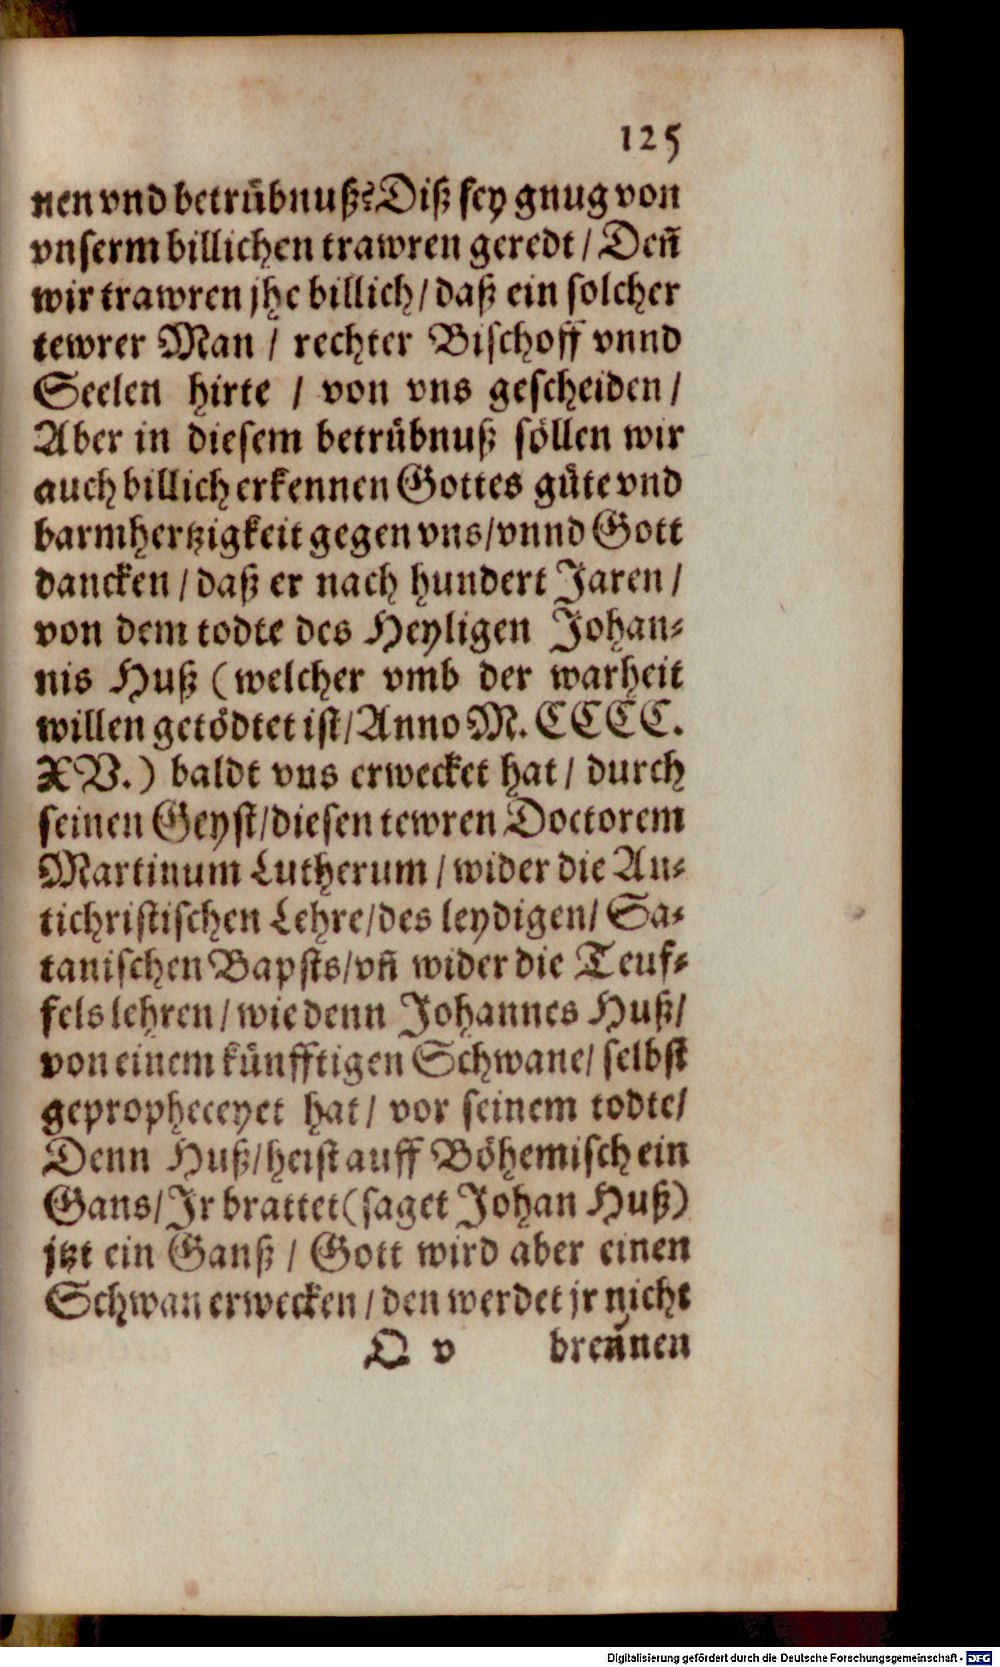 125
nen vnd betrübnuß? Diß sey gnug von
vnserm billichen trawren geredt / Deñ
wir trawren jhe billich / daß ein solcher
tewrer Man / rechter Bischoff vnnd
Seelen hirte / von vns gescheiden /
Aber in diesem betrübnuß söllen wir
auch billich erkennen Gottes güte vnd
barmhertzigkeit gegen vns / vnnd Gott
dancken / daß er nach hundert Jaren /
von dem todte des Heyligen Johan-
nis Huß (welcher vmb der warheit
willen getödtet ist / Anno M. CCCC.
XV.) baldt vns erwecket hat / durch
seinen Geyst / diesen tewren Doctorem
Martinum Lutherum / wider die An-
tichristischen Lehre / des leydigen / Sa-
tanischen Bapsts / vñ wider die Teuf-
fels lehren / wie denn Johannes Huß /
von einem künfftigen Schwane / selbst
gepropheceyet hat / vor seinem todte /
Denn Huß / heist auff Böhemisch ein
Gans / Ir brattet (saget Johan Huß)
jtzt ein Ganß / Gott wird aber einen
Schwan erwecken / den werdet jr nicht
Q v brennen
Digitalisierung gefördert durch die Deutsche Forschungsgemeinschaft - DFG